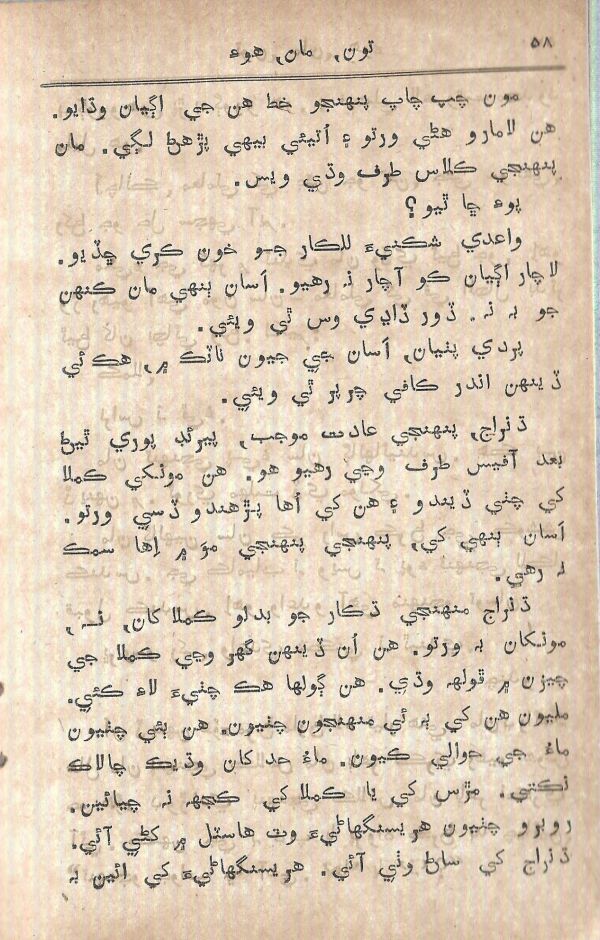 ۵۸
تون, مان, هوءِ
مون چپ چاپ پنهنجو خط هن جي اڳيان وڌايو.
هن لامارو هڻي ورتو ۽ اُتيئي بيهي پڙهڻ لڳي. مان
پنهنجي ڪلاس طرف وڌي ويس.
پوءِ ڇا ٿيو؟
واعدي شڪنيءَ للڪار جو خون ڪري ڇڏيو.
لاچار اڳيان ڪو آچار نہ رهيو. اَسان ٻنهي مان ڪنهن
جو بہ نہ. ڏور ڏاڍي وس ٿي ويئي.
پردي پٺيان, اَسان جي جيون ناٽڪ ۾, هڪ ئي
ڏينهن اندر ڪافي چرپر ٿي ويئي.
ڌنراج, پنهنجي عادت موجب, پيرئڊ پوري ٿيڻ
بعد آفيس طرف وڃي رهيو هو. هن مونکي ڪملا
کي چٺي ڏيندو ۽ هن کي اُها پڙهندو ڏسي ورتو.
اَسان ٻنهي کي, پنهنجي پنهنجي موَ ۾ اِها سمڪ
نہ رهي.
ڌنراج منهنجي ڌڪار جو بدلو ڪملا کان, نہ,
مونکان بہ ورتو. هن اُن ڏينهن گهر وڃي ڪملا جي
چيزن ۾ ڦولهہ وڌي. هن ڳولها هڪ چٺيءَ لاءِ ڪئي.
مليون هن کي ٻہ ئي منهنجون چٺيون. هن ٻئي چٺيون
ماءُ جي حوالي ڪيون. ماءُ حد کان وڌيڪ چالاڪ
نڪتي. مڙس کي يا ڪملا کي ڪجهہ نہ چيائين.
روبرو چٺيون هريسنگهاڻيءَ وٽ هاسٽل ۾ کڻي آئي.
ڌنراج کي ساڻ وٺي آئي. هريسنگهاڻيءَ کي ائين بہ